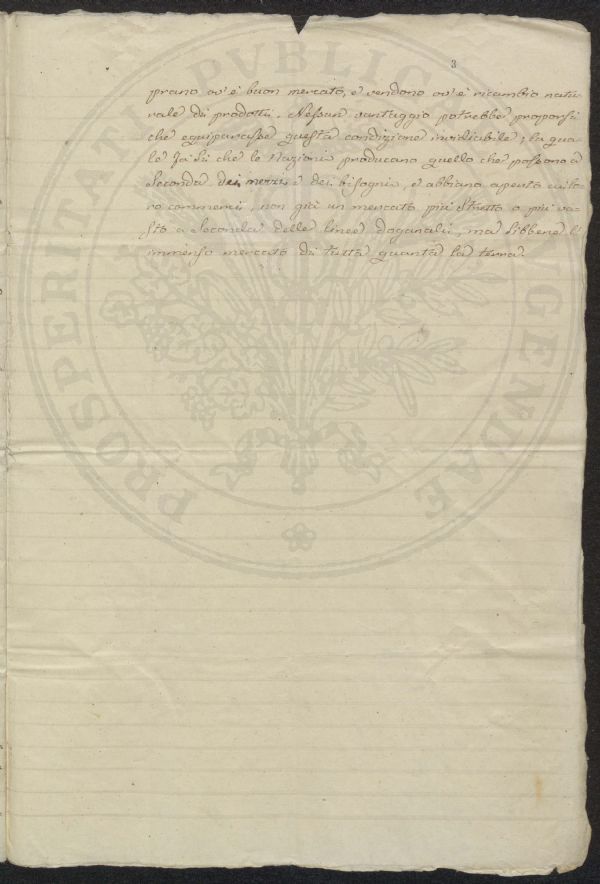 3
prano ov'è buon mercato, e vendono ov'è ricambio natu-
rale dei prodotti. Nessun vantaggio potrebbe proporsi
che equiparasse questa condizione invidiabile; la qua-
le fa sì che le Nazioni producano quello che possono a
seconda dei mezzi e dei bisogni, e abbiano aperto ai lo-
ro commerci, non già un mercato più stretto o più va-
sto a seconda delle linee doganali, ma sibbene l'
immenso mercato di tutta quanta la terra.
PROSPERITATI PVBLICAE AVGENDAE